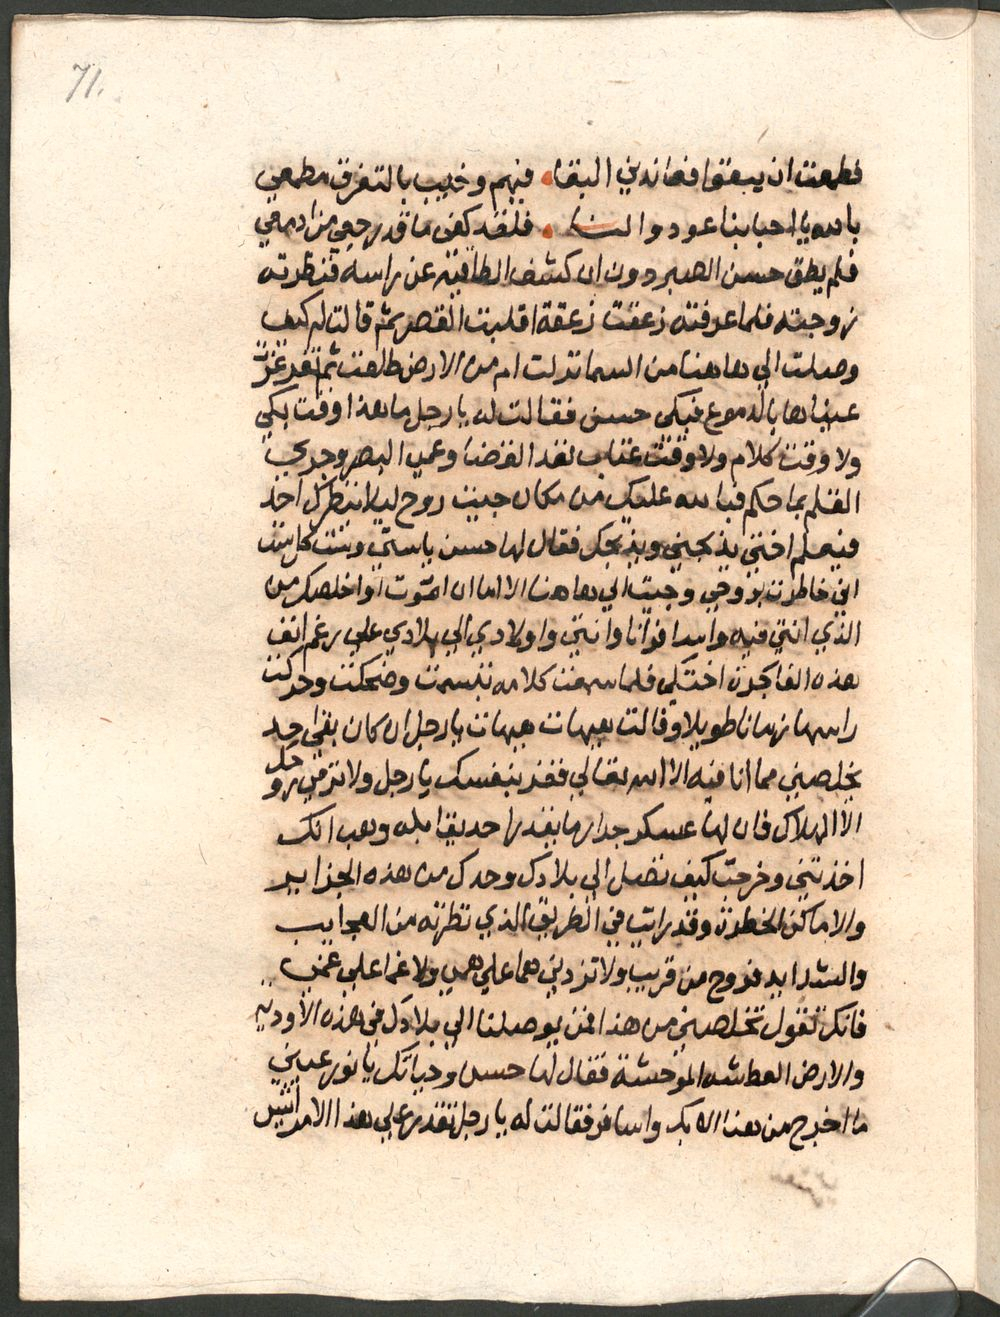 71.
فطمعت ان يبقوا فعاندني البقا فيهم وخيب بالتفرق مطمعي
بالله يا احبابنا عودوا لنا فلقد كفى ما قد رجعي من ادمعي
فلم يطق حسن الصبر دون ان كشف الطاقيه عن راسه فنظرته
زوجته فلما عرفته زعقت زعقة اقلبت القصر ثم قالت له كيف
وصلت الي هاهنا من السما نزلت ام من الارض طلعت ثم تغرغرت
عيناها بالدموع فبكي حسن فقالت له يا رجل ما هذا وقت بكي
ولا وقت كلام ولا وقت عتاب نفد القضا وعمي البصر وجري
القلم بما حكم فبالله عليك من مكان جيت روح ليلا ينظرك احد
فيعلم اختي يذبحني ويذبحك فقال لها حسن يا ستي وست كل ست
اني خاطرت بروحي وجيت الي هاهنا الا اما ان اموت او اخلصك من
الذي انتي فيه واسافر انا وانتي واولادي الي بلادي علي رغم انف
هذه الفاجرة اختكي فلما سمعت كلامه تبسمت وضحكت وحركت
راسها زمانا طويلا وقالت هيهات هيهات يا رجل ان كان بقي احد
يخلصني مما انا فيه الا الله تعالي ففز بنفسك يا رجل ولا ترمي روحك
الا الهلاك فان لها عسكر جرار ما يقدر احد يقابله وهب انك
اخذتني وخرجت كيف تصل الي بلادك وحدك من هذه الجزاير
والاماكن الخطرة وقد رايت في الطريق الذي نظرته من العجايب
والشدايد فروح من قريب ولا تزدني هما علي همي ولا غما علي غمي
فانك تقول تخلصني من هذا فمن يوصلنا الي بلادك في هذه الاوديه
والارض العطشه الموحشة فقال لها حسن وحياتك يا نور عيني
ما اخرج من هنا الا بك واسافر فقالت له يا رجل تقدر علي هذا الامر ايش